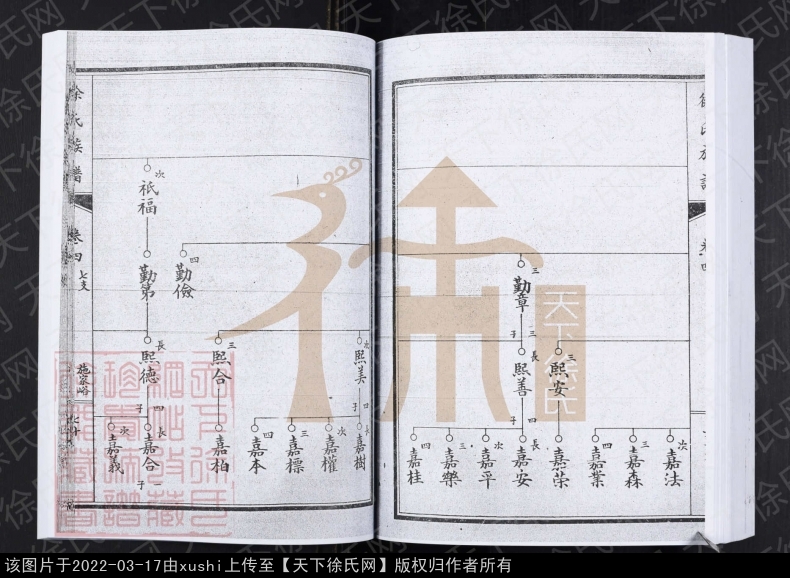 次
三
四
嘉法
嘉森
嘉業
三
熙安
嘉荣
三
勤章
三子
長
熙善
四子
長
嘉安
次
嘉平
三
嘉樂
四
嘉桂
次
熙美
四子
長
嘉樹
次
嘉權
三
嘉標
四
嘉本
三
熙合
嘉柏
四
勤儉
次
祇福
勤第
長
熙德
四子
長
嘉合
一子
次
嘉義
余氏族譜
卷四
七支
天下徐氏
天下徐氏网
该图片于2022-03-17由xushi上传至【天下徐氏网】版权归作者所有